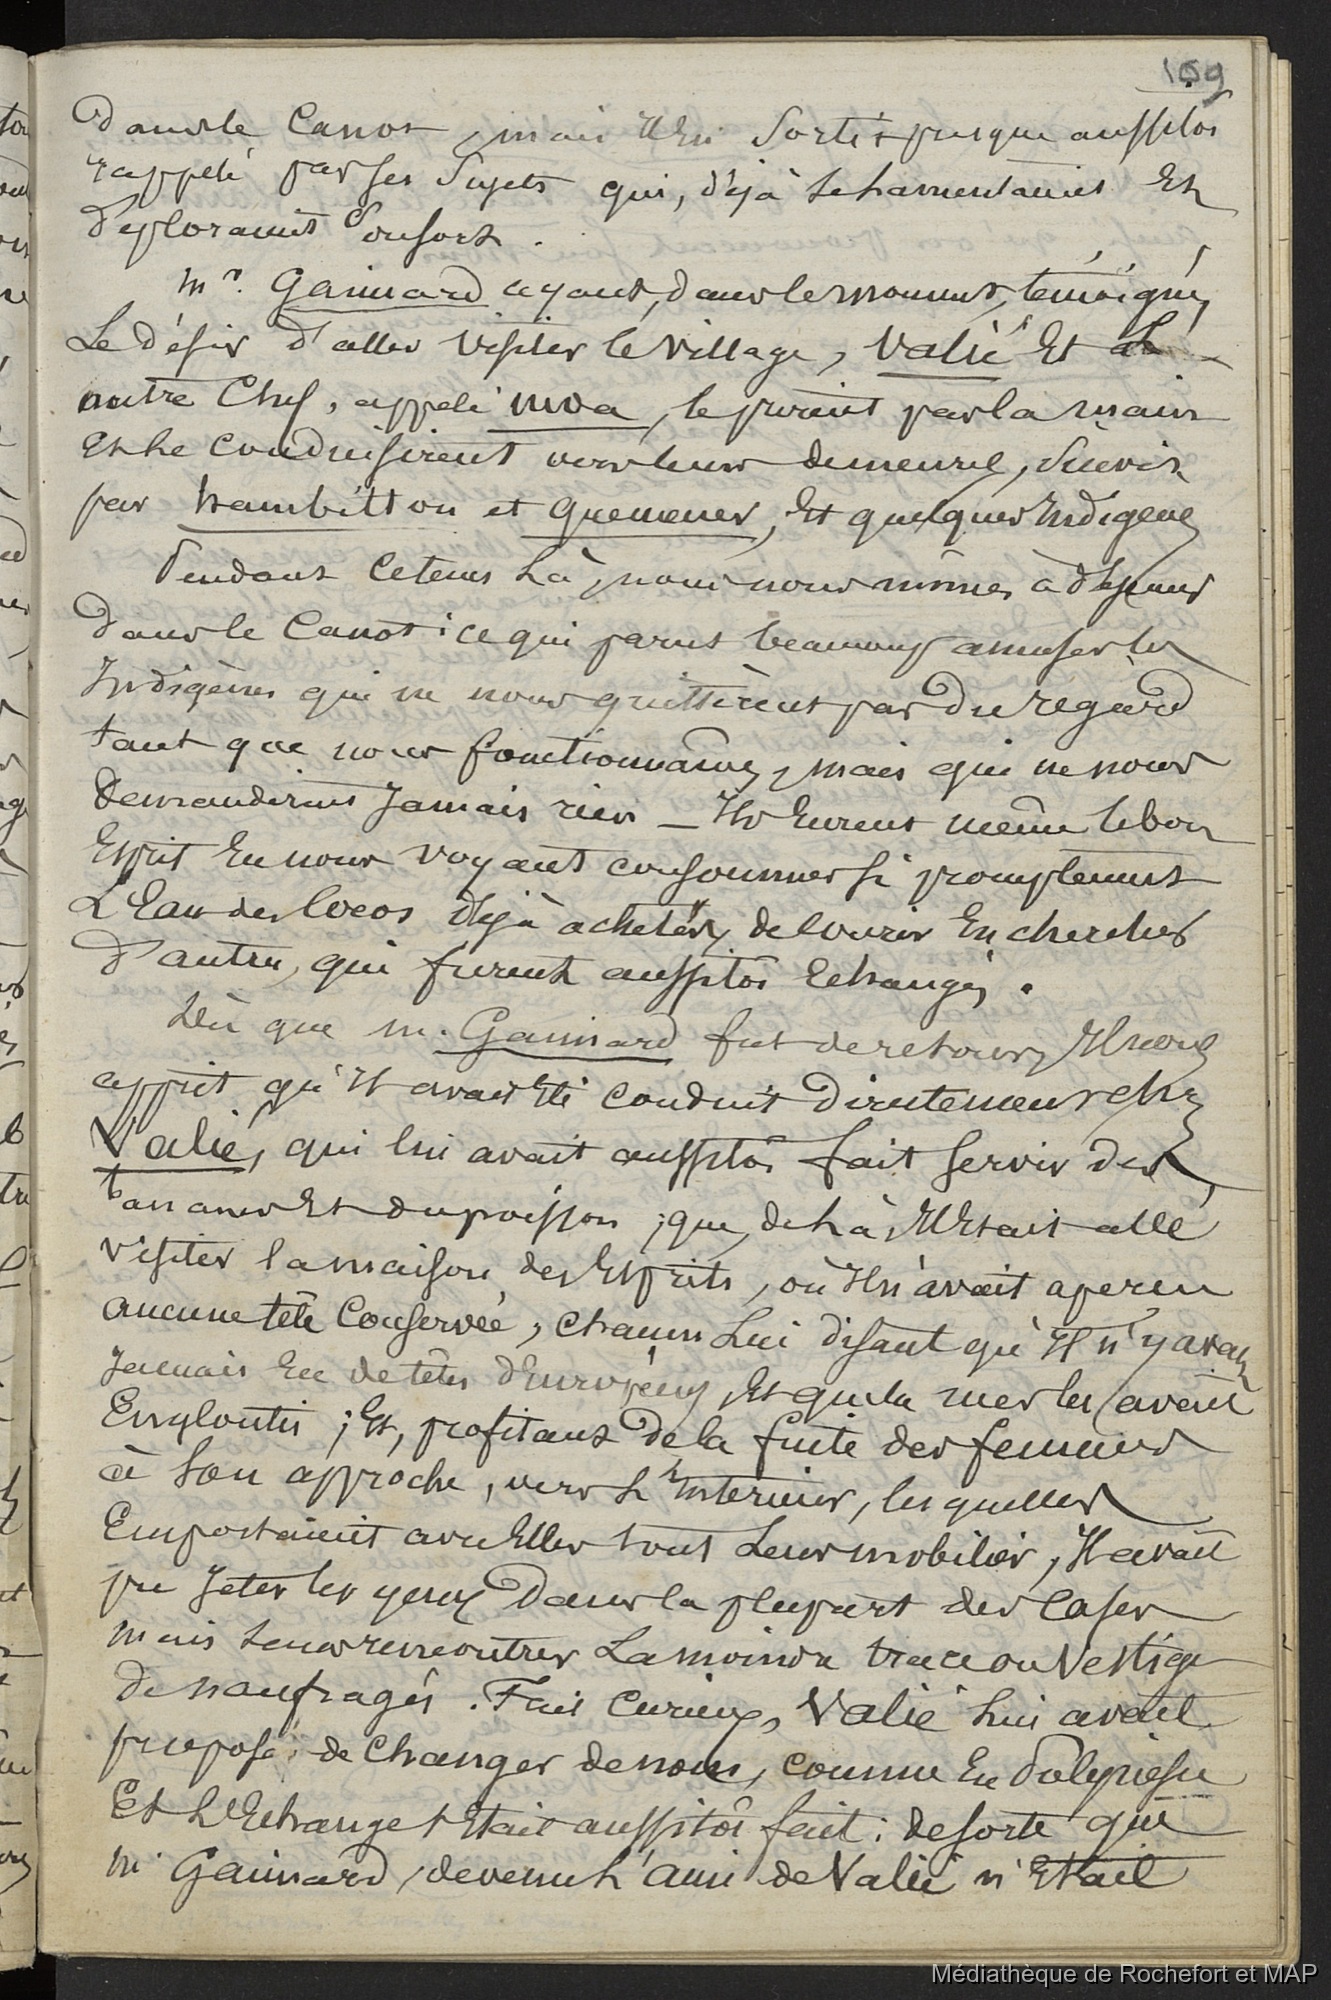 159
dans le Canot, mais il En Sortit presque aussitôt
rappelé par ses Sujets qui, déjà se Lamentaient Et
déploraient Son sort.
Mr. Gaimard ayant, dans le moment, témoigné,
Le désir d'aller visiter le village, Valié Et un
autre Chef, appelé moa, le prirent par la main
Et le conduisirent vers leurs demeures, Suivis
par hambilton et quemener, Et quelques Indigènes
Pendant ce tems Là, nous nous mîmes à déjeuner
dans le Canot : ce qui parut beaucoup amuser les
Indigènes qui ne nous quittèrent pas du regard
tant que nous fonctionnâmes, mais qui ne nous
demandèrent Jamais rien — Ils Eurent même le bon
Esprit En nous voyant consommer si promptement
L'Eau des Cocos déjà achetés, de courir En chercher
d'autres, qui furent aussitôt Echangés.
Dès que m. Gaimard fut de retour, Il nous
apprit qu'Il avait Eté conduit directement chez
Valié, qui lui avait aussitôt fait servir des
bananes Et du poisson ; que, de Là, Il Etait allé
visiter la maison des Esprits, où Il n'avait aperçu
aucune tête Conservée, chacun Lui disant qu'Il n'y avait
Jamais Eu de têtes d'Européens, Et que la mer les avait
Engloutis ; Et, profitant de la fuite des femmes
à Son approche, vers L'Intérieur, lesquelles
Emportaient avec Elles tout Leur mobilier, Il avait
pu Jeter les yeux dans la plupart des Cases
mais sans rencontrer La moindre trace ou Vestige
de naufragés. Fait Curieux, Valié Lui avait
proposé de Changer de nom, comme En Polynésie
Et L'Echange s'Etait aussitôt fait : de sorte que
m. Gaimard, devenu L'ami de Valié n'Etait
Médiathèque de Rochefort et MAP